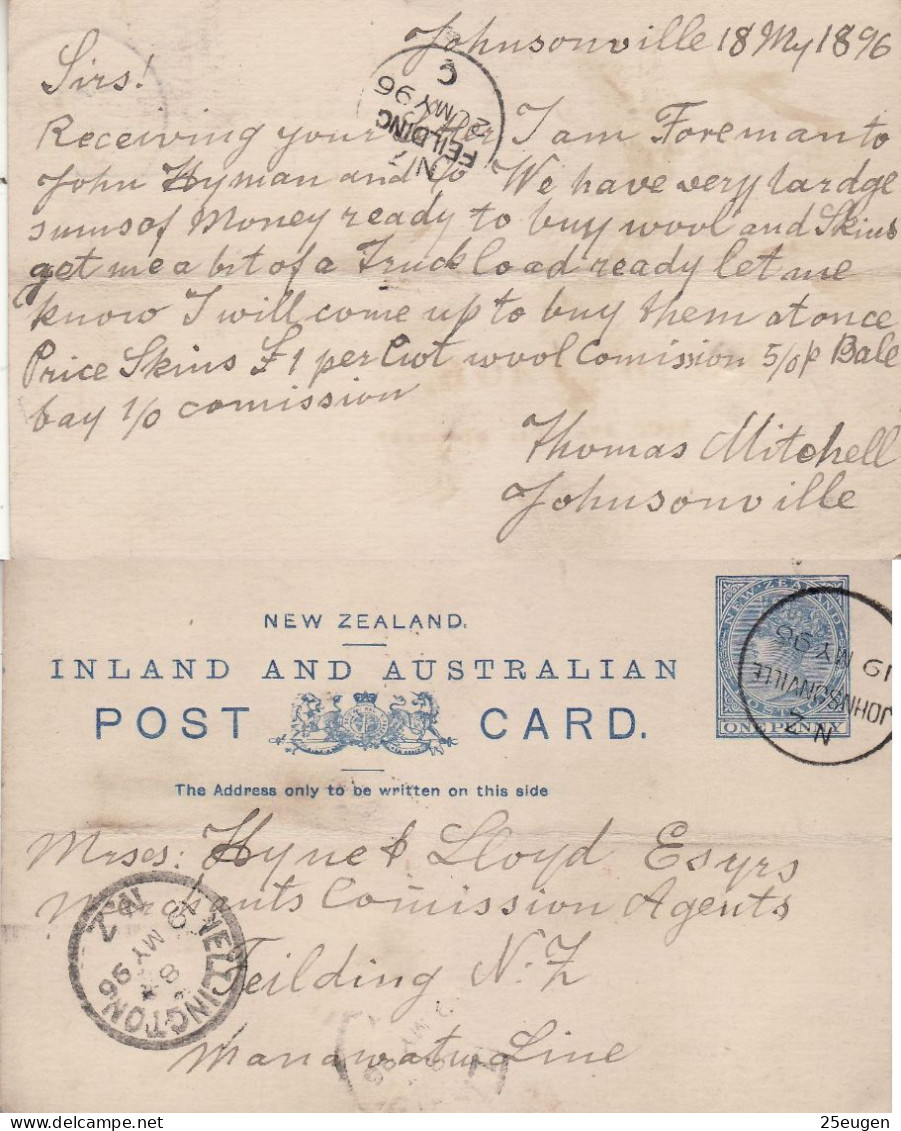 Johnsonville 18 My 1896
Sirs!
Receiving your Letter I am Foreman to
John Hyman and Co We have very lardge
sums of Money ready to buy wool and Skins
get me a bit of a Truck load ready let me
know I will come up to buy them at once
Price Skins £1 per Cwt wool Comission 5/0 p Bale
bay 1/0 comission
Thomas Mitchell
Johnsonville
FEILDING
N.Z
2 MY 96
C
NEW ZEALAND.
INLAND AND AUSTRALIAN
POST CARD.
The Address only to be written on this side
NEW·ZEALAND
ONE PENNY
JOHNSONVILLE
N.Z
19 MY 96
Mrses: Hyne & Lloyd Esyrs
Comission Agents
Feilding N.Z
Manawatu Line
WELLINGTON
N.Z
19 MY 96
8
25eugen